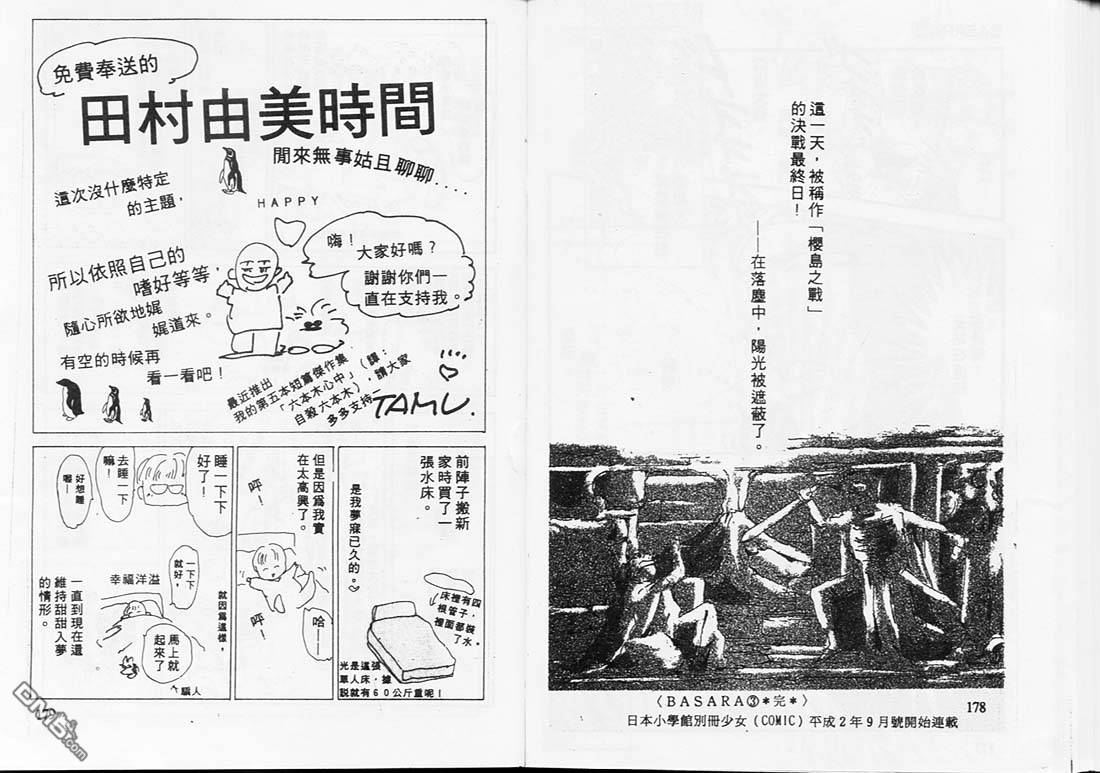 這一天，被稱作「櫻島之戰」
的決戰最終日！
——在落塵中，陽光被遮蔽了。
〈BASARA③＊完＊〉
178
日本小學館別冊少女（COMIC）平成2年9月號開始連載
免費奉送的
田村由美時間
閒來無事姑且聊聊....
這次沒什麼特定
的主題，
HAPPY
所以依照自己的
嗜好等等，
隨心所欲地娓
娓道來。
有空的時候再
看一看吧！
嗨！
大家好嗎？
謝謝你們一
直在支持我。
最近推出
我的第五本短篇傑作集
「六本木心中」（譯：
自殺六本木），請大家
多多支持－
TAMU.
前陣子搬新
家時買了一
張水床。
是我夢寐已久的。
床裡有四
根管子，
裡面都裝
了水。
光是這張
單人床，據
説就有60公斤重呢！
但是因為我實
在太高興了。
呼！
呼！
哈——
睡一下下
好了！
去睡一下
嘛！
好想睡
喔—
一下下
就好，
就因為這樣，
幸福洋溢
馬上就
起來了
騙人
一直到現在還
維持甜甜入夢
的情形。
DM5.com